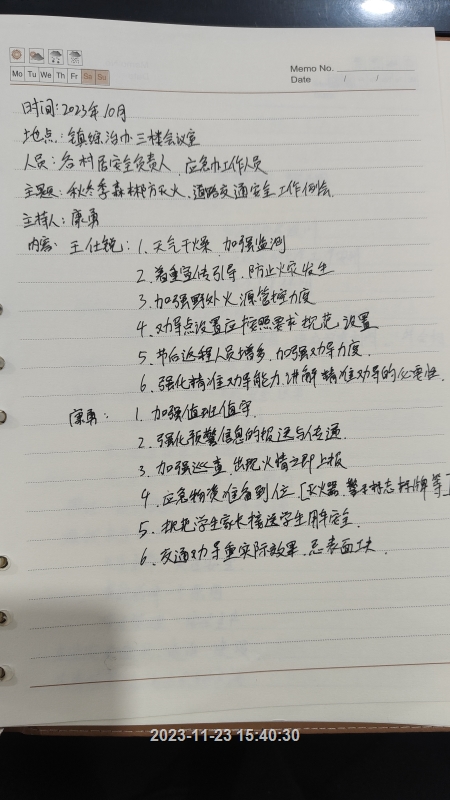 Memo No.
Mo Tu We Th Fr Sa Su
Date / /
时间:2023年10月
地点:镇综治办三楼会议室
人员:各村居安全负责人、应急办工作人员
主题:秋冬季森林防灭火、道路交通安全工作例会.
主持人:康勇
内容: 王仕锐:1.天气干燥,加强监测
2.着重宣传引导,防止火灾发生
3.加强野外火源管控力度
4.劝导点设置应按照要求规范设置
5.节后返程人员增多,加强劝导力度.
6.强化精准劝导能力,讲解精准劝导的必要性.
康勇: 1.加强值班值守.
2.强化预警信息的报送与传递.
3.加强巡查,出现火情立即上报
4.应急物资准备到位[灭火器、警示标志标牌等]
5.学生家长接送学生用车安全.
6.交通劝导重实际效果,忌表面工夫.
2023-11-23 15:40:30